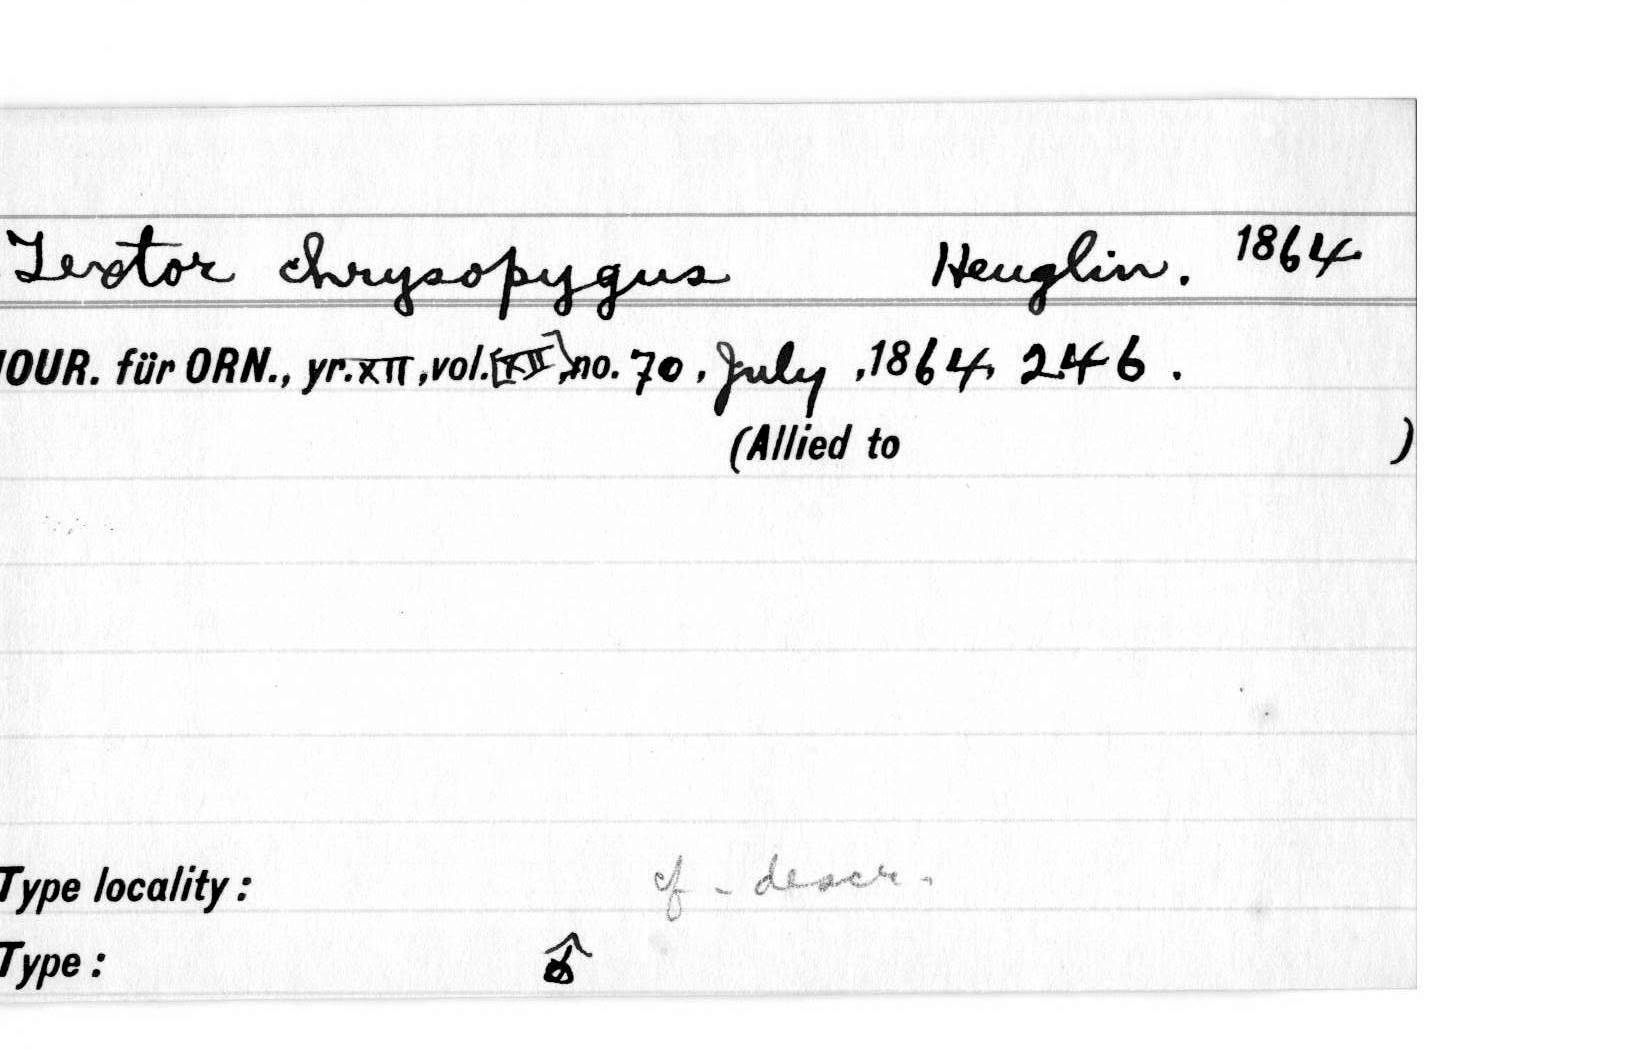 Textor chrysopygus Heuglin. 1864
JOUR. für ORN., yr. XII, vol. [XII], no. 70, July, 1864, 246.
(Allied to )
Type locality: cf. descr.
Type: ♂